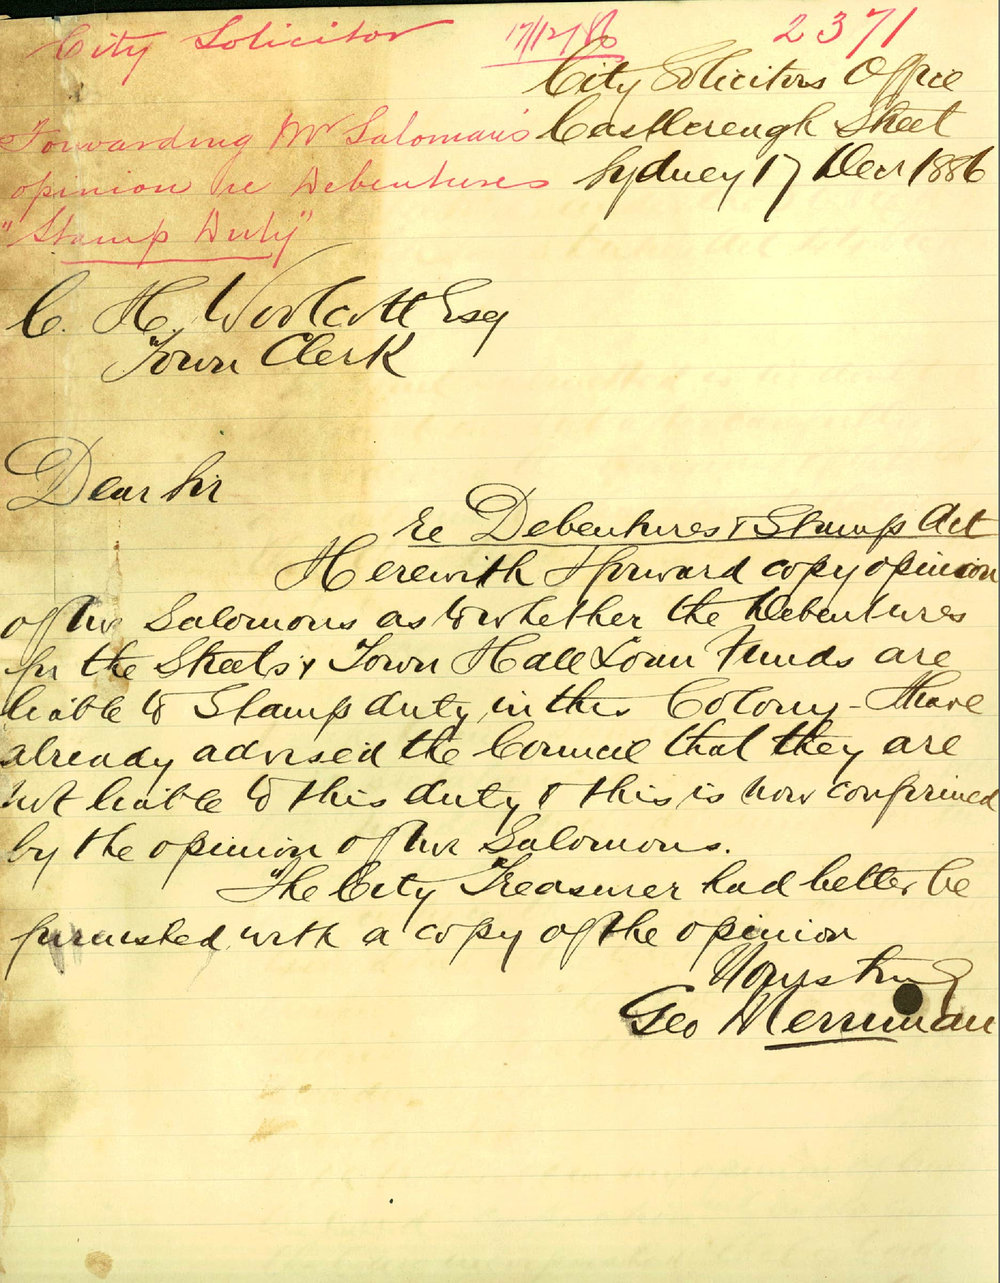 City Solicitor
17/12/86
2371
City Solicitors Office
Castlereagh Street
Sydney 17 Decr 1886
Forwarding Mr Saloman's
opinion re Debentures
"Stamp Duty"
C. H. Woolcott Esq
Town Clerk
Dear Sir
re Debentures & Stamp Act
Herewith I forward copy opinion
of Mr Salomons as to whether the Debentures
for the Streets & Town Hall Loan Funds are
liable to Stamp duty in this Colony - I have
already advised the Council that they are
not liable to this duty & this is now confirmed
by the opinion of Mr Salomons.
The City Treasurer had better be
furnished with a copy of the opinion
Yours truly
Geo Merriman